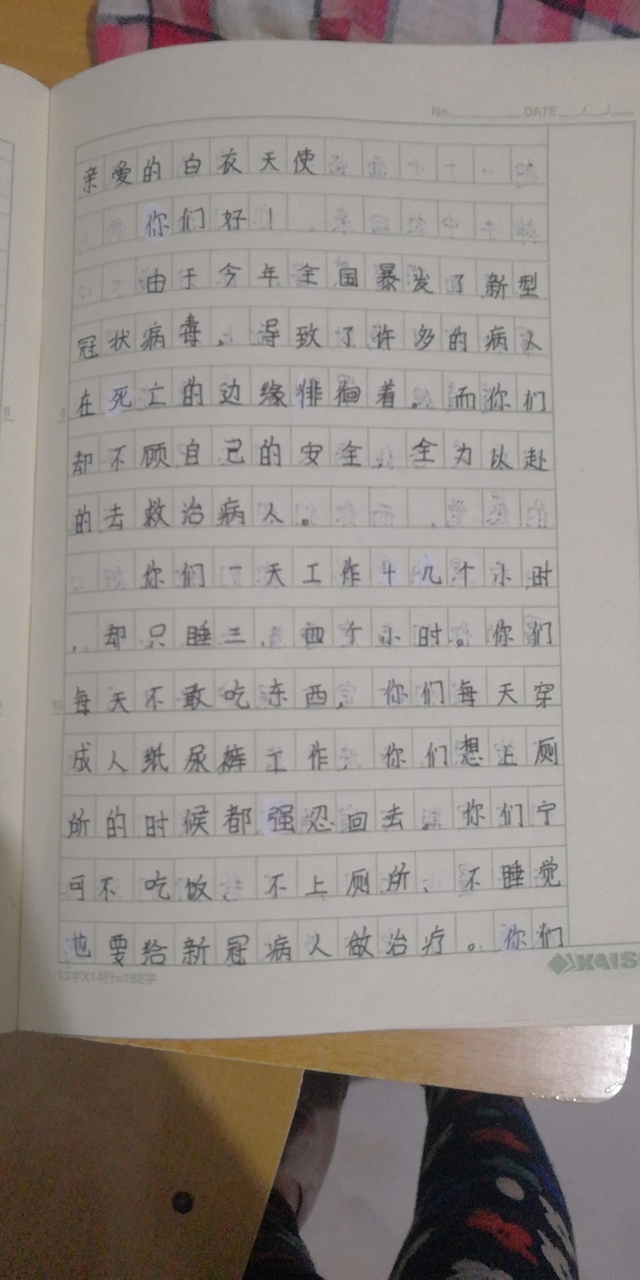 No. DATE / /
亲爱的白衣天使
你们好！
由于今年全国暴发了新型
冠状病毒，导致了许多的病人
在死亡的边缘徘徊着。而你们
却不顾自己的安全，全为以赴
的去救治病人。
你们一天工作十几个小时
，却只睡三、四个小时。你们
每天不敢吃东西，你们每天穿
成人纸尿裤工作，你们想上厕
所的时候都强忍回去。你们宁
可不吃饭、不上厕所、不睡觉
也要给新冠病人做治疗。你们
5
10
13字X14行=182字
KAIS